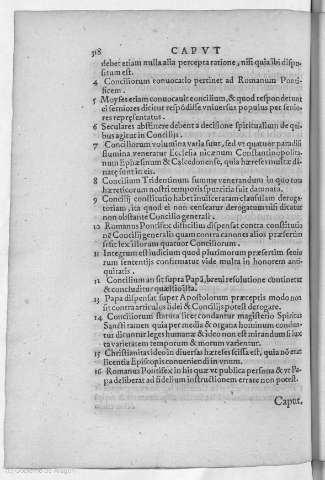 318 CAPVT
debet etiam nulla alia percepta ratione, nisi quia ibi dispositum est.
4 Conciliorum conuocatio pertinet ad Romanum Pontificem.
5 Moyses etiam conuocauit concilium, & quod respondetunt
ei seniores dicitur respōdisse vniuersus populus per seniores repræsentatus.
6 Seculares abstinere debent a decisione spiritualium de quibus agitur in Concilijs.
7 Conciliorum volumina varia sunt, sed vt quatuor paradisi
flumina veneratur Ecclesia nicænum Constantinopolitanum
Ephæsinum & Calcedonense, quia hæreses multæ dinatæ sunt in eis.
8 Concilium Tridentinum summe venerandum in quo tota
hæreticorum nostri temporis spurcitia fuit damnata.
9 Concilij constitutio habet in visceram clausulam derogatoriam
, ita quod ei non censeatur derogatum nisi dicatur
non obstante Concilio generali.
10 Romanus Pontifex difficilius dispensat contra constitutionē
Concilij generalis quam contra canones alios præsertim
si sit lex illorum quatuor Conciliorum.
11 Integrum est iudicium quod plurimorum præsertim seniorum
sententijs confirmatur vide multa in honorem antiquitatis.
12 Concilium an sit supra Papā, breui resolutione continetur
& concluditur quæstio ista.
13 Papa dispensat super Apostolorum præceptis modo non
sit contra articulos fidei & Concilijs potest derogare.
14 Conciliorum statuta licet condantur magisterio Spiritus
Sancti tamen quia per media & organa hominum conduntur
dicuntur leges humanæ & ideo non est mirandum si iuxta
varietatem temporum & morum varientur.
15 Christianitas ideo in diuersas hæreses scissa est, quia nō erat
licentia Episcopis conueniendi in vnum.
16 Romanus Pontifex in his quæ vt publica persona & vt Papa
deliberat ad fidelium instructionem errare non potest.
Caput.
(c) Gobierno de Aragón